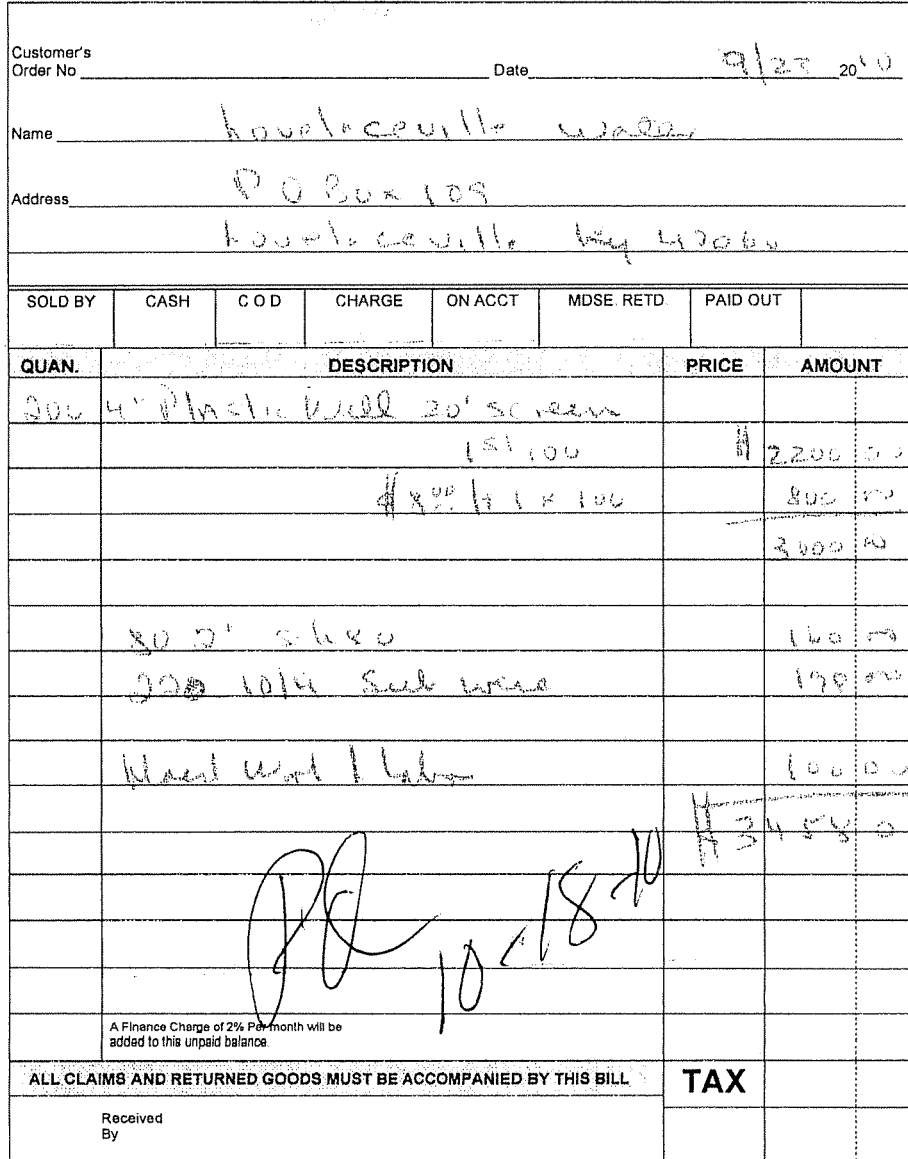 Customer's
Order No Date 9/23 2010
Name Lovelaceville Water
Address P O Box 109
Lovelaceville Ky 42060
SOLD BY CASH C O D CHARGE ON ACCT MDSE. RETD. PAID OUT
QUAN. DESCRIPTION PRICE AMOUNT
200 4" Plastic Well 20' screen
1st 100 $ 2200 00
$8.00 ft x 100 800 00
3000 00
80 2" sh80 160 00
220 10/4 Sub wire 198 00
Labor 100 00
$ 3458 0
Pd 10-18-10
A Finance Charge of 2% Per month will be
added to this unpaid balance.
ALL CLAIMS AND RETURNED GOODS MUST BE ACCOMPANIED BY THIS BILL TAX
Received
By